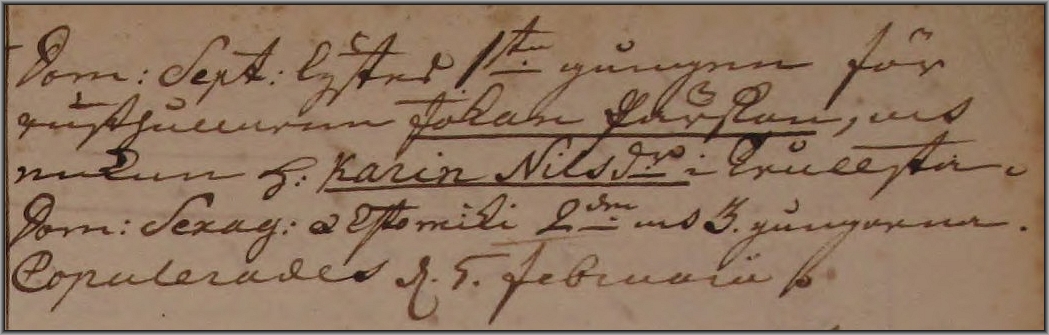 Dom: Sept: lystes 1sta gången för
rusthållaren Johan Pärsson, och
enkan H: Karin Nilsdr i Trullsta.
Dom: Sexag: & Estomihi 2dra och 3. gångerna.
Copulerades d. 5. februarii